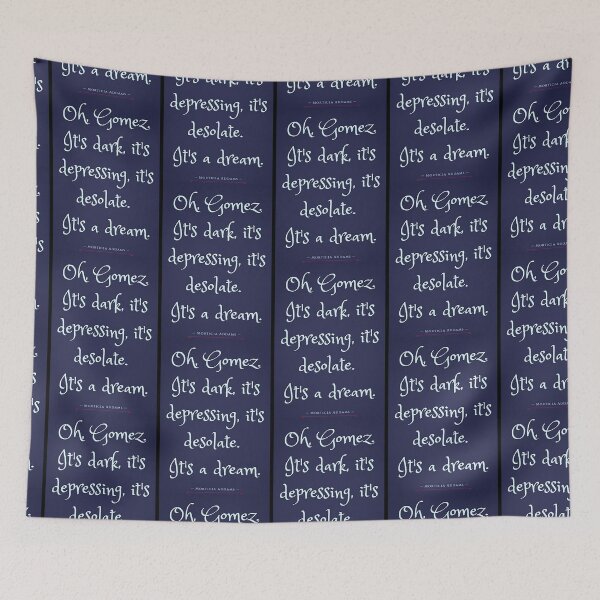 It's a dream.
– MORTICIA ADDAMS –
Oh, Gomez.
It's dark, it's
depressing, it's
desolate.
It's a dream.
– MORTICIA ADDAMS –
Oh, Gomez.
It's dark, it's
depressing, it's
desolate.
It's a dream.
– MORTICIA ADDAMS –
Oh, Gomez.
It's dark, it's
depressing, it's
desolate.
It's dark, it's
depressing, it's
desolate.
It's a dream.
– MORTICIA ADDAMS –
Oh, Gomez.
It's dark, it's
depressing, it's
desolate.
It's a dream.
– MORTICIA ADDAMS –
Oh, Gomez.
It's dark, it's
depressing, it's
desolate.
It's a dream.
– MORTICIA ADDAMS –
Oh, Gomez.
It's a dream.
– MORTICIA ADDAMS –
Oh, Gomez.
It's dark, it's
depressing, it's
desolate.
It's a dream.
– MORTICIA ADDAMS –
Oh, Gomez.
It's dark, it's
depressing, it's
desolate.
It's a dream.
– MORTICIA ADDAMS –
Oh, Gomez.
It's dark, it's
depressing, it's
desolate.
It's dark, it's
depressing, it's
desolate.
It's a dream.
– MORTICIA ADDAMS –
Oh, Gomez.
It's dark, it's
depressing, it's
desolate.
It's a dream.
– MORTICIA ADDAMS –
Oh, Gomez.
It's dark, it's
depressing, it's
desolate.
It's a dream.
– MORTICIA ADDAMS –
Oh, Gomez.
It's a dream.
– MORTICIA ADDAMS –
Oh, Gomez.
It's dark, it's
depressing, it's
desolate.
It's a dream.
– MORTICIA ADDAMS
Oh, Gomez.
It's dark, it's
depressing, it's
desolate.
It's a dream.
– MORTICIA ADDAMS
Oh, Gomez.
It's dark, it's
depressing, it's
desolate.